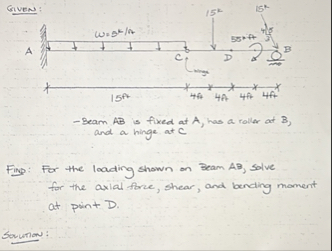 GIVEN:
15ᵏ
15ᵏ
W=5ᵏ/ft
A
C
D
B
hinge
15ft
4ft 4ft 4ft 4ft
-Beam AB is fixed at A, has a roller at B,
and a hinge at C
FIND: For the loading shown on Beam AB, solve
for the axial force, shear, and bending moment
at point D.
SOLUTION: